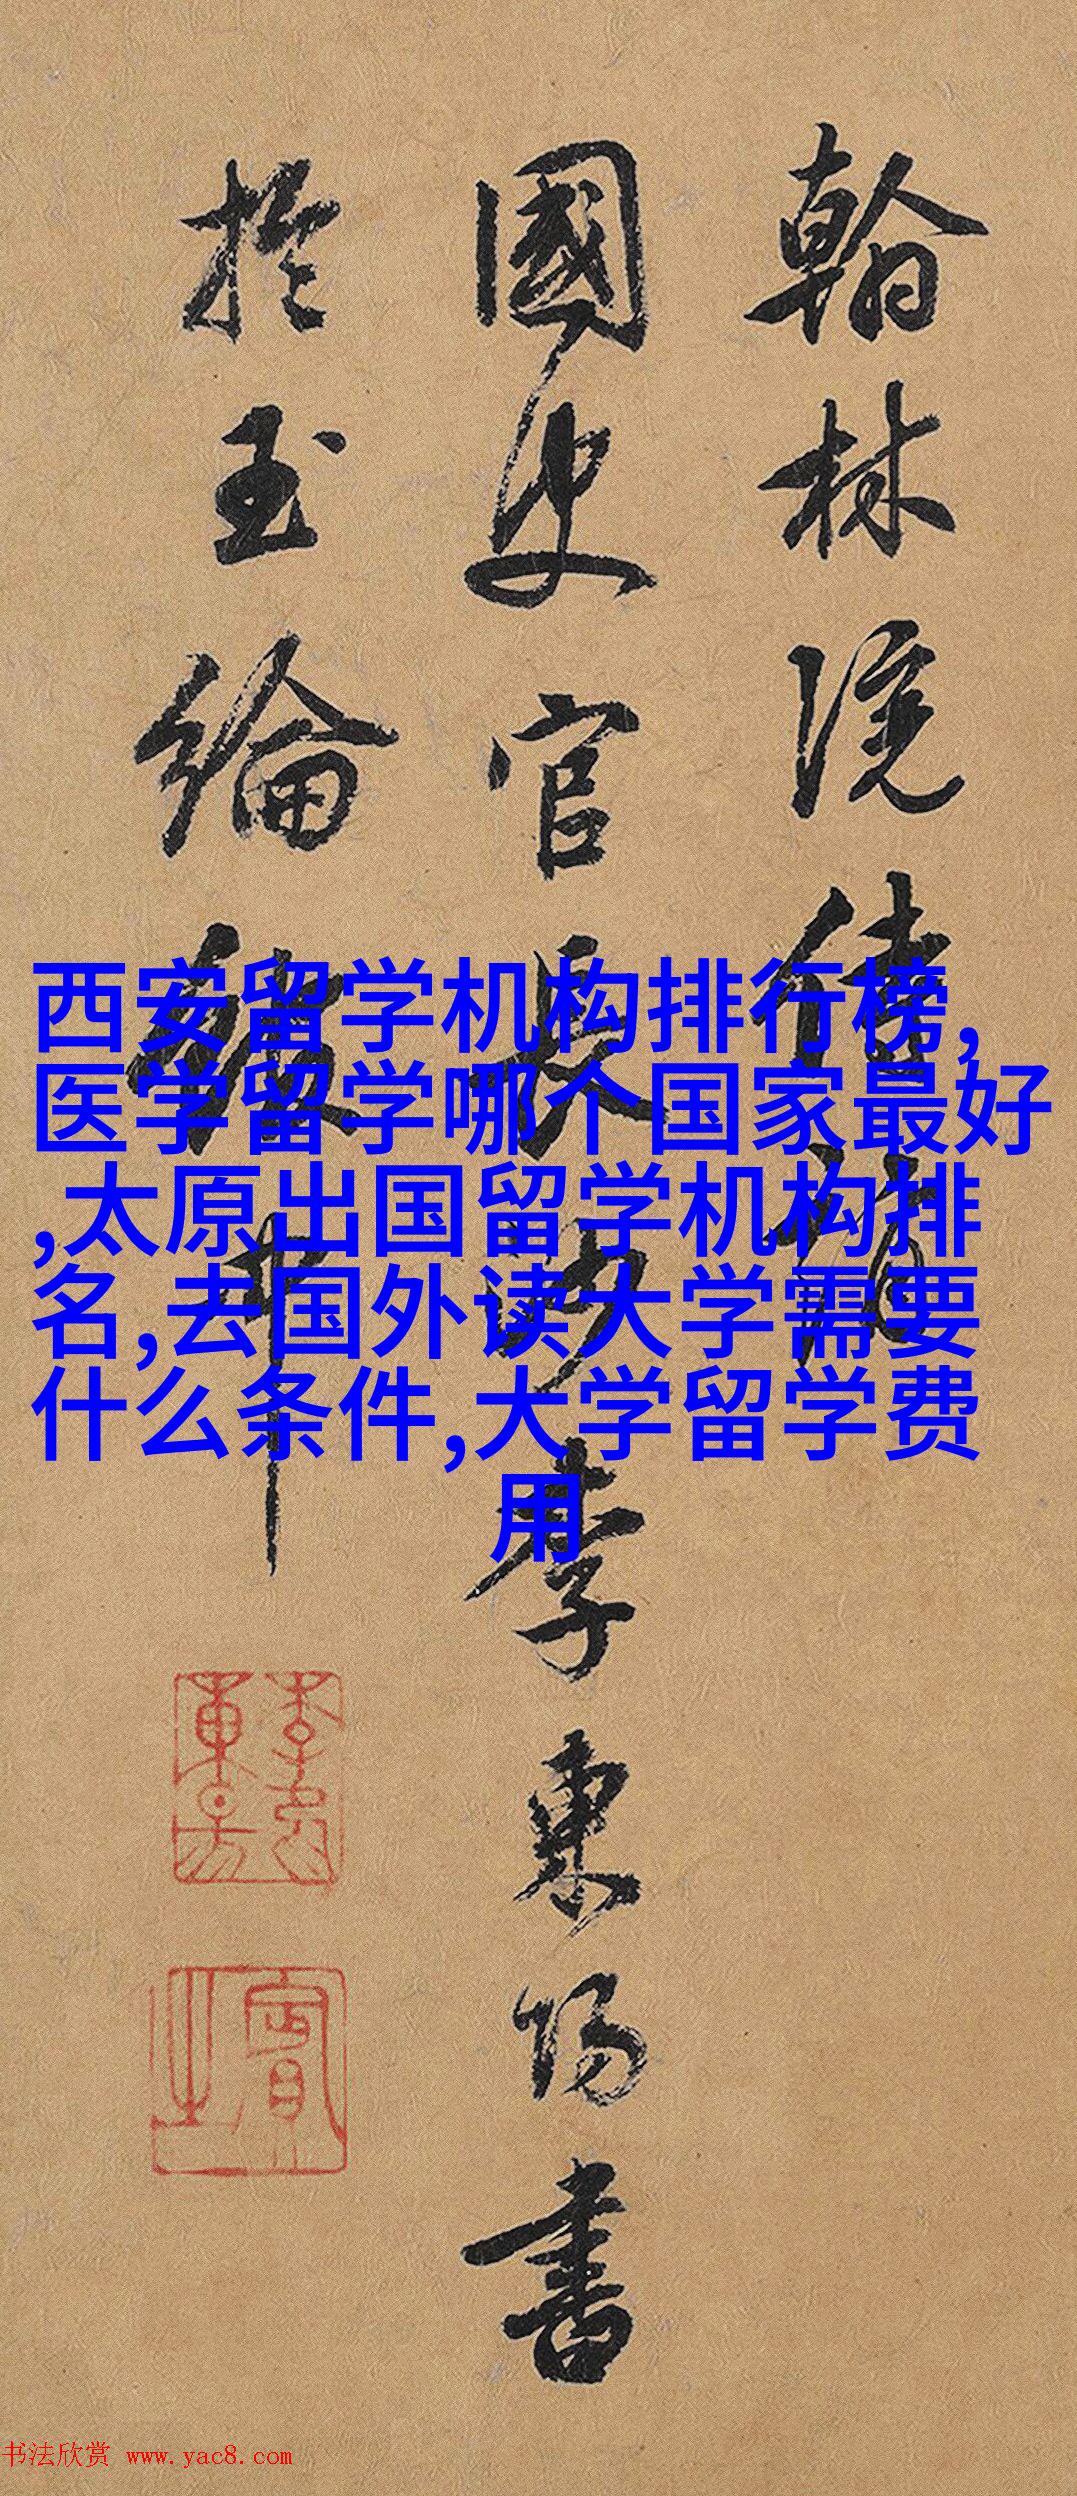 翰林院侍講
國史官長沙李東陽書
於玉綸館中
西安留学机构排行榜,
医学留学哪个国家最好
,太原出国留学机构排
名,去国外读大学需要
什么条件,大学留学费
用
书法欣赏 www.yac8.com